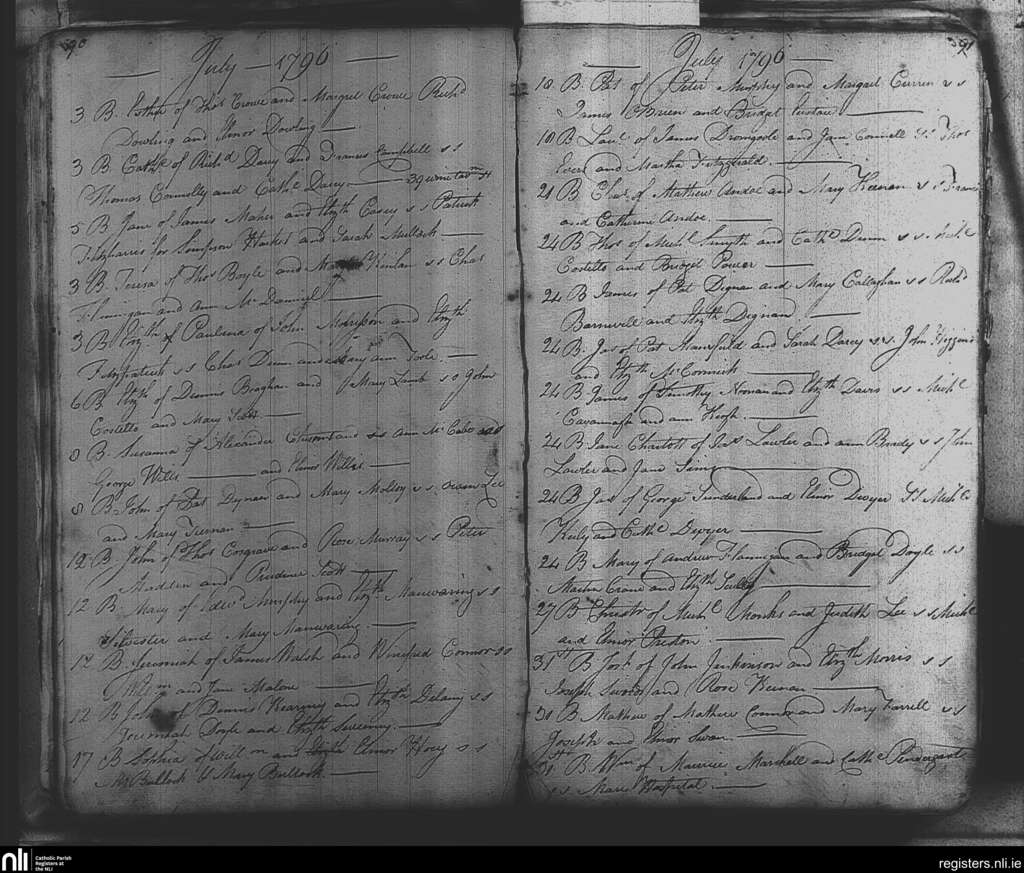 390
July — 1796
3 B. Esther of Thos Crowe and Margret Crowe Richd
Dowling and Elinor Dowling
3 B. Cathe of Richd Darcy and Frances Campbell s s
Thomas Connolly and Cathe Darcy
5 B Jane of James Maher and Elizth Casey s s Patrick
Fitzharris for Simpson Hacket and Sarah Mullock
3 B. Teresa of Thos Boyle and Kinlan s s Chas
Flinnigan and Ann Mc Daniel
3 B Elizth of Paulina of John and Elizth
Fitzpatrick s s Chas Dunn and Mary Ann Toole
6 B Elizth of Dennis Braghan and Mary Lamb s s John
Costello and Mary Scott
8 B. Susanna of Alexander and s s Ann Mc Cabe
George Willis and Elinor Willis
8 B John of Pat Dignan and Mary Molloy s s Lee
and Mary Keenan
12 B. John of Thos Cosgrave and Rose Murray s s Peter
Madden and Prudence Scott
12 B. Mary of Edwd Murphy and Elizth Manwaring s s
Silvester and Mary Manwaring
12 B. Jeremiah of James Walsh and Winifred Connor s s
Willm and Jane Malone
12 B John of Dennis Kearney and Elizth Delany s s
Jeremiah Doyle and Elizth Sweeney
17 B Sophia of Willm and Elinor Hoey s s
Bullock & Mary Bullock
391
July 1796
18 B. Pat of Peter Murphy and Margaret Curren s s
James O'Brien and Bridget Eustace
18 B Lau. of James Dromgoole and Jane Connell Ss Thos
Evers and Martha Fitzgerald
21 B Edwd. of Mathew Andoe and Mary Keenan s s Francis
and Catherine Andoe
24 B Thos of Michl Smyth and Cathe Dunn s s Michl
Costello and Bridget Power
24 B James of Pat Dignan and Mary Callaghan s s Richd
Barnwell and Elizth Dignan
24 B. Jas of Pat Mansfield and Sarah Darcy s s. John Higgins
and Elizth Mc Cormick
24 B James of Timothy Noonan and Elizth Davis s s Michl
Cavannagh and Ann Keogh
24 B Jane Charlott of Jas Lawler and Ann Brady s s John
Lawler and Jane
24 B Jas of George Sunderland and Elinor Dwyer Ss Michl
Kiely and Cathe Dwyer
24 B Mary of Andrew Flannigan and Bridget Doyle s s
Martin Crane and Elizth Scully
27 B Christr of Michl Monks and Judith Lee s s Michl
and Elinor Preston
31st B Josh of John Jenkinson and Elizth Morris s s
Joseph and Rose Keenan
31 B Mathew of Mathew Connor and Mary Farrell s s
Joseph and Elinor Swan
31st B. Wm of Maurice Marshall and Cathe Pendergast
s s Marie Hospital
nli
Catholic Parish
Registers at
the NLI
registers.nli.ie